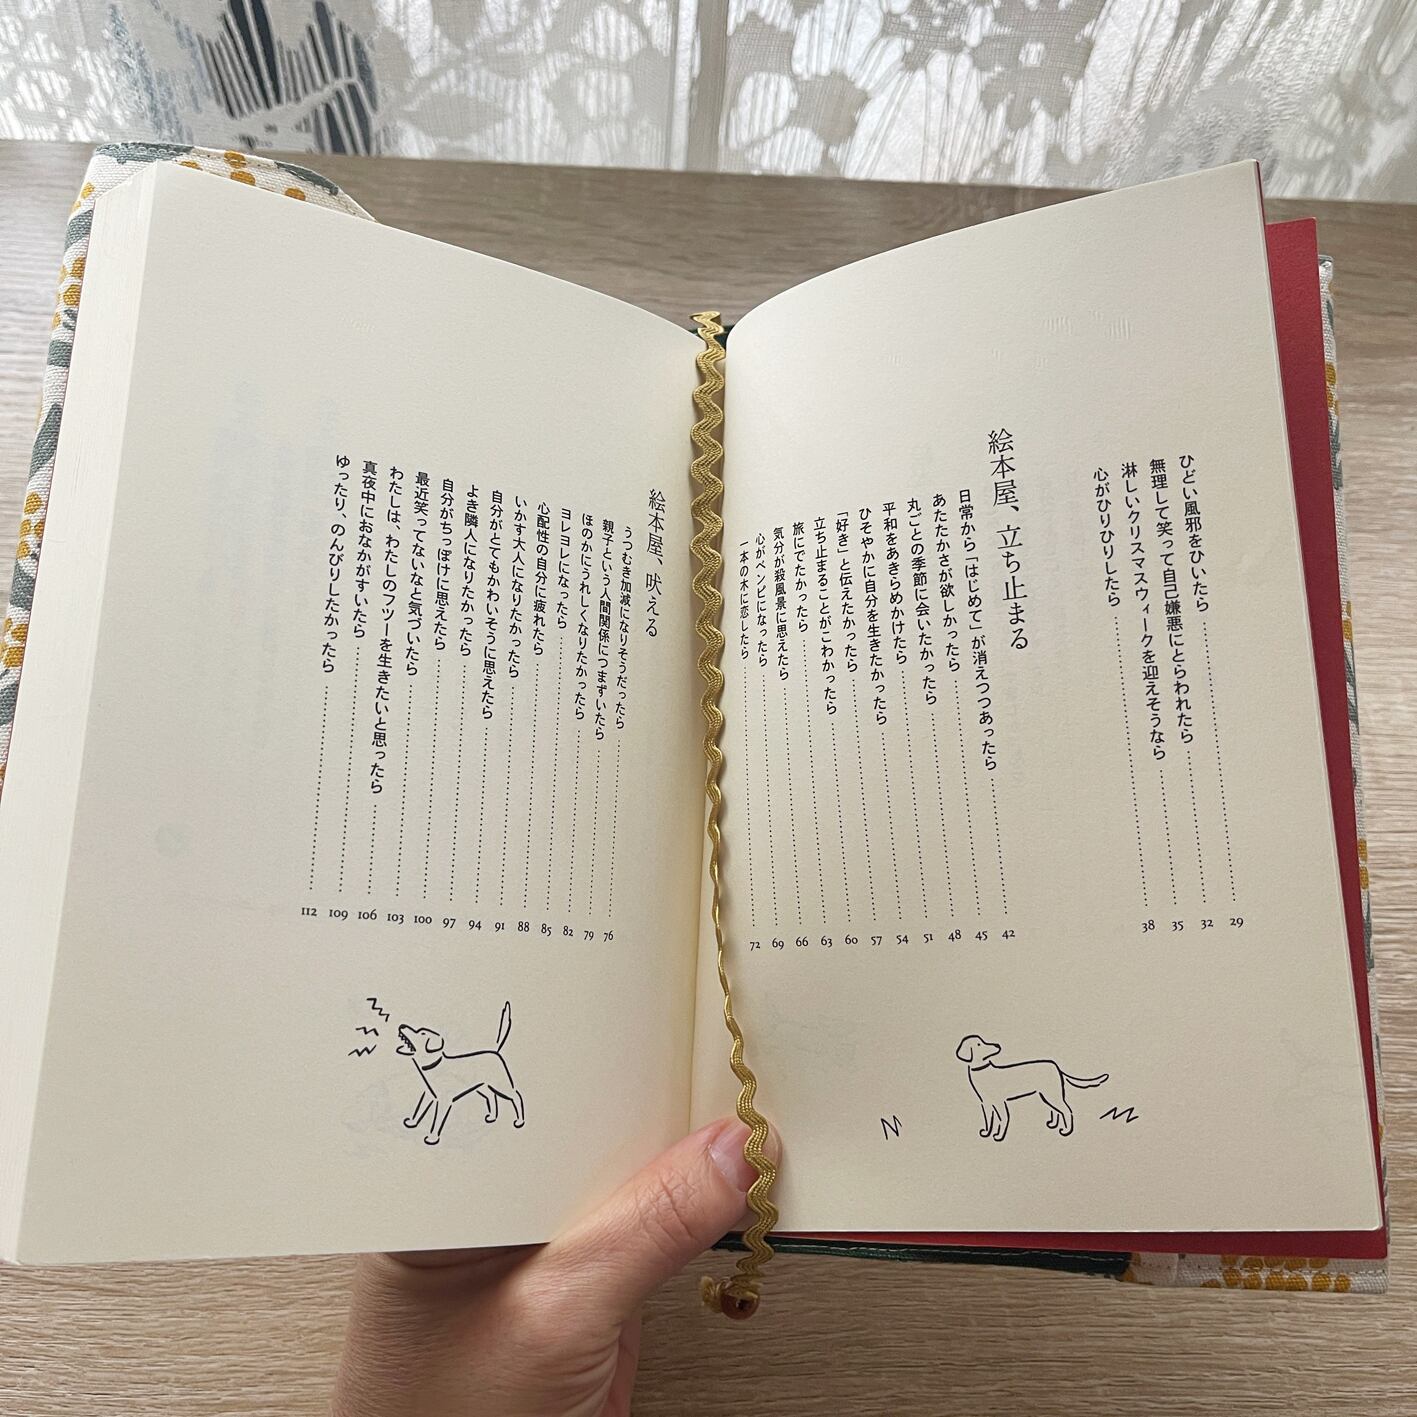 ひどい風邪をひいたら……………29
無理して笑って自己嫌悪にとらわれたら……………32
淋しいクリスマスウィークを迎えそうなら……………35
心がひりひりしたら……………38
絵本屋、立ち止まる
日常から「はじめて」が消えつつあったら……………42
あたたかさが欲しかったら……………45
丸ごとの季節に会いたかったら……………48
平和をあきらめかけたら……………51
ひそやかに自分を生きたかったら……………54
「好き」と伝えたかったら……………57
立ち止まることがこわかったら……………60
旅にでたかったら……………63
気分が殺風景に思えたら……………66
心がペンピになったら……………69
一本の木に恋したら……………72
絵本屋、吠える
うつむき加減になりそうだったら……………76
親子という人間関係につまずいたら……………79
ほのかにうれしくなりたかったら……………82
ヨレヨレになったら……………85
心配性の自分に疲れたら……………88
いかす大人になりたかったら……………91
自分がとてもかわいそうに思えたら……………94
よき隣人になりたかったら……………97
自分がちっぽけに思えたら……………100
最近笑ってないなと気づいたら……………103
わたしは、わたしのフツーを生きたいと思ったら……………106
真夜中におなかがすいたら……………109
ゆったり、のんびりしたかったら……………112